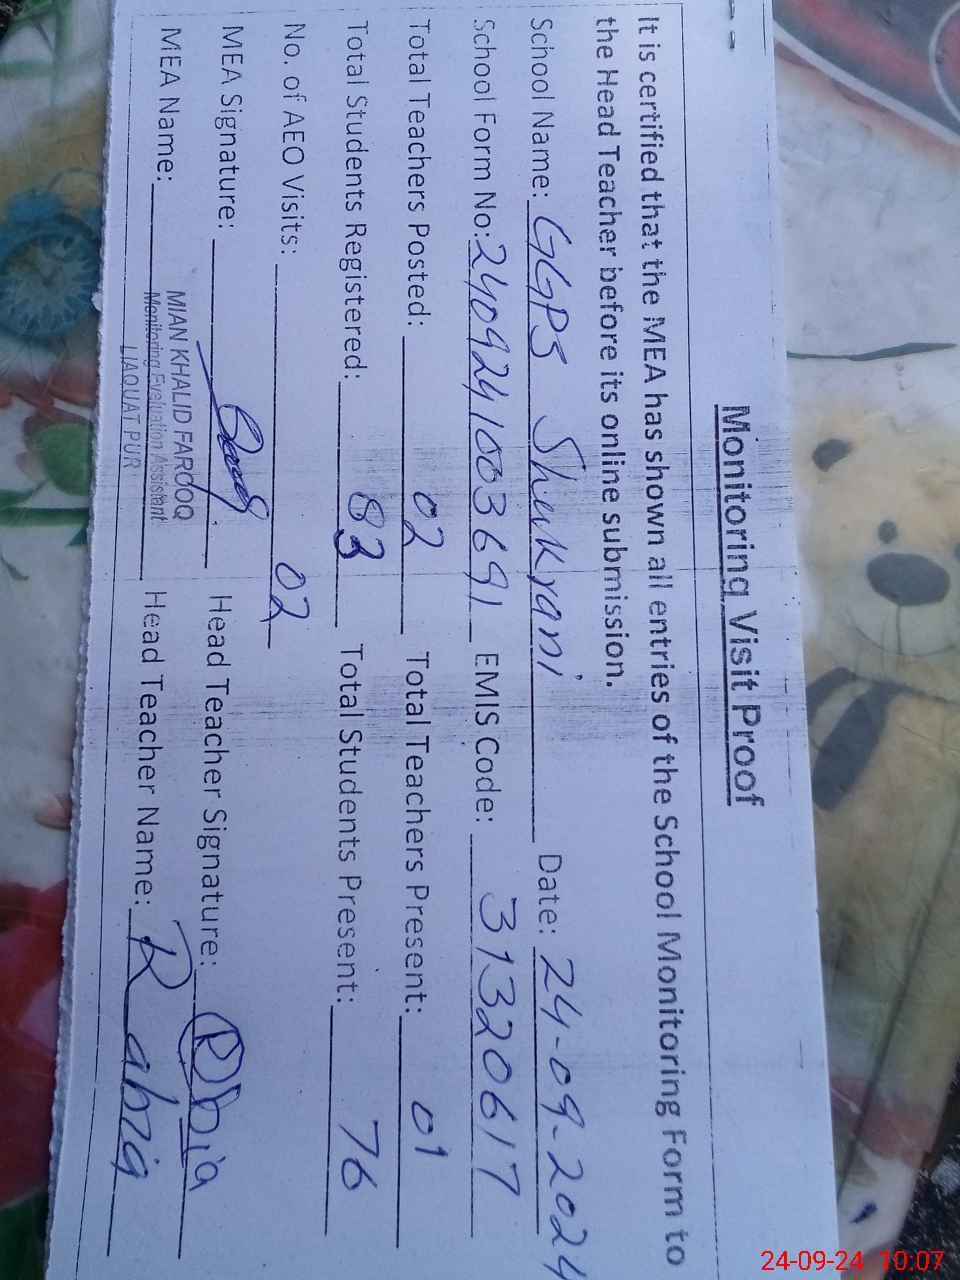 Monitoring Visit Proof
It is certified that the MEA has shown all entries of the School Monitoring Form to
the Head Teacher before its online submission.
School Name: GGPS Shukrani Date: 24-09-2024
School Form No: 24092410036 91 EMIS Code: 31320617
Total Teachers Posted: 02 Total Teachers Present: 01
Total Students Registered: 83 Total Students Present: 76
No. of AEO Visits: 02
MEA Signature: Head Teacher Signature: Rabia
MEA Name: MIAN KHALID FAROOQ Head Teacher Name: Rabia
Monitoring Evaluation Assistant
LIAQUAT PUR
24-09-24 10:07